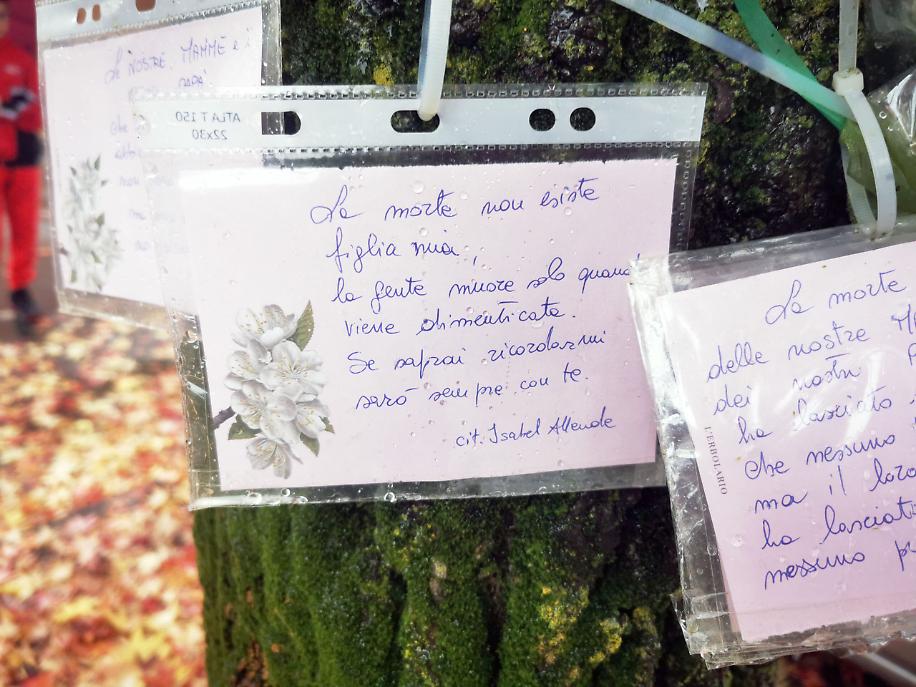 Le NOSTRE MAMME e i
PAPÀ
ATLA T 150
22x30
La morte non esiste
figlia mia,
la gente muore solo quando
viene dimenticata.
Se saprai ricordarmi
sarò sempre con te.
cit. Isabel Allende
La morte
delle nostre
dei nostri
ha lasciato
che nessuno
ma il loro
ha lasciato
nessuno
L'ERBOLARIO